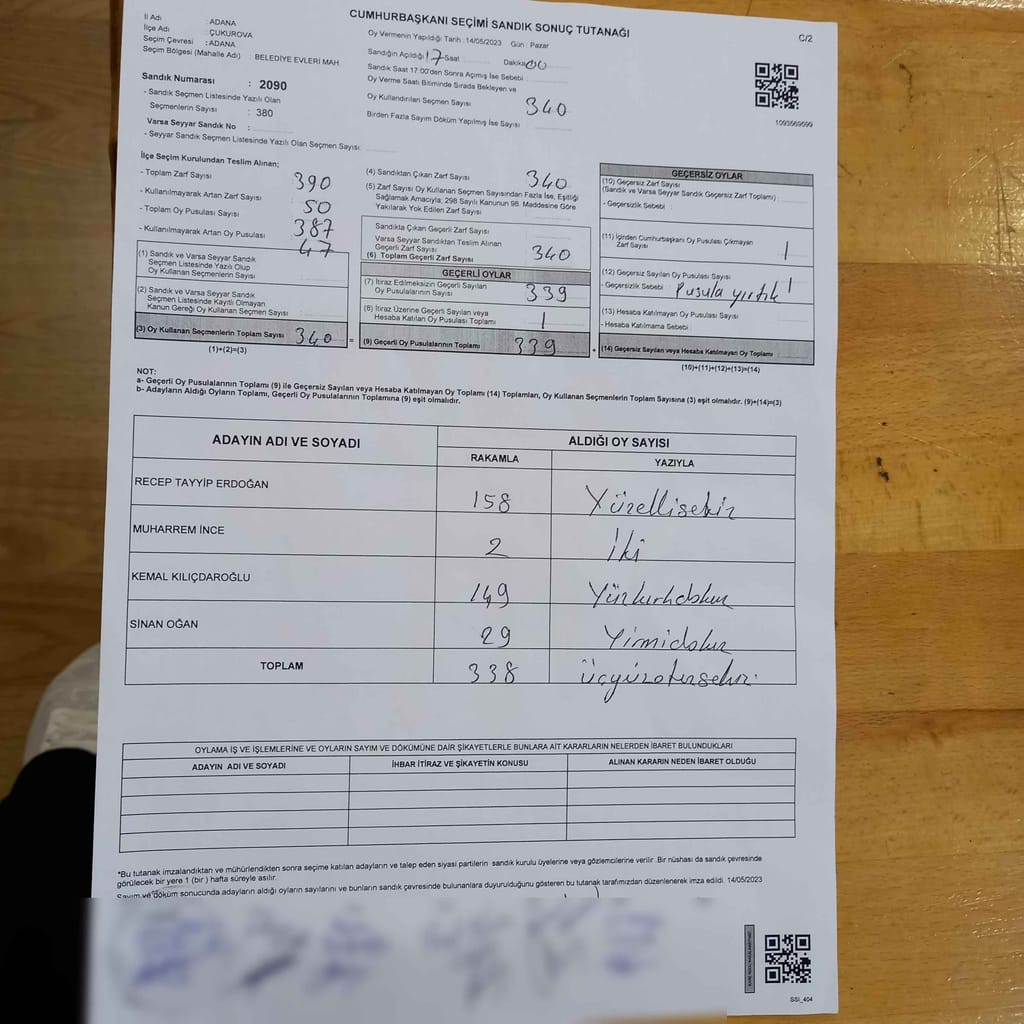 CUMHURBAŞKANI SEÇİMİ SANDIK SONUÇ TUTANAĞI
C/2
İl Adı : ADANA
İlçe Adı : ÇUKUROVA
Seçim Çevresi : ADANA
Seçim Bölgesi (Mahalle Adı) : BELEDİYE EVLERİ MAH
Sandık Numarası : 2090
- Sandık Seçmen Listesinde Yazılı Olan
Seçmenlerin Sayısı : 380
Varsa Seyyar Sandık No :
- Seyyar Sandık Seçmen Listesinde Yazılı Olan Seçmen Sayısı:
Oy Vermenin Yapıldığı Tarih : 14/05/2023 Gün : Pazar
Sandığın Açıldığı 17 Saat Dakika 00
Sandık Saat 17:00'den Sonra Açımış İse Sebebi :
Oy Verme Saati Bitiminde Sırada Bekleyen ve
Oy Kullandırılan Seçmen Sayısı 340
Birden Fazla Sayım Döküm Yapılmış İse Sayısı
1093669699
İlçe Seçim Kurulundan Teslim Alınan;
- Toplam Zarf Sayısı 390
- Kullanılmayarak Artan Zarf Sayısı 50
- Toplam Oy Pusulası Sayısı 387
- Kullanılmayarak Artan Oy Pusulası 47
(1) Sandık ve Varsa Seyyar Sandık
Seçmen Listesinde Yazılı Olup
Oy Kullanan Seçmenlerin Sayısı :
(2) Sandık ve Varsa Seyyar Sandık
Seçmen Listesinde Kayıtlı Olmayan
Kanun Gereği Oy Kullanan Seçmen Sayısı :
(3) Oy Kullanan Seçmenlerin Toplam Sayısı 340
(1)+(2)=(3)
=
(4) Sandıktan Çıkan Zarf Sayısı 340
(5) Zarf Sayısı Oy Kullanan Seçmen Sayısından Fazla İse, Eşitliği
Sağlamak Amacıyla, 298 Sayılı Kanunun 98. Maddesine Göre
Yakılarak Yok Edilen Zarf Sayısı
Sandıkla Çıkan Geçerli Zarf Sayısı
Varsa Seyyar Sandıktan Teslim Alınan
Geçerli Zarf Sayısı
(6) Toplam Geçerli Zarf Sayısı 340
GEÇERLİ OYLAR
(7) İtiraz Edilmeksizin Geçerli Sayılan
Oy Pusulalarının Sayısı 339
(8) İtiraz Üzerine Geçerli Sayılan veya
Hesaba Katılan Oy Pusulası Toplamı 1
(9) Geçerli Oy Pusulalarının Toplamı 339
+
GEÇERSİZ OYLAR
(10) Geçersiz Zarf Sayısı
(Sandık ve Varsa Seyyar Sandık Geçersiz Zarf Toplamı)
- Geçersizlik Sebebi :
(11) İçinden Cumhurbaşkanı Oy Pusulası Çıkmayan
Zarf Sayısı 1
(12) Geçersiz Sayılan Oy Pusulası Sayısı 1
- Geçersizlik Sebebi : Pusula yırtık
(13) Hesaba Katılmayan Oy Pusulası Sayısı
- Hesaba Katılmama Sebebi :
(14) Geçersiz Sayılan veya Hesaba Katılmayan Oy Toplamı :
(10)+(11)+(12)+(13)=(14)
NOT:
a- Geçerli Oy Pusulalarının Toplamı (9) ile Geçersiz Sayılan veya Hesaba Katılmayan Oy Toplamı (14) Toplamları, Oy Kullanan Seçmenlerin Toplam Sayısına (3) eşit olmalıdır. (9)+(14)=(3)
b- Adayların Aldığı Oyların Toplamı, Geçerli Oy Pusulalarının Toplamına (9) eşit olmalıdır.
ADAYIN ADI VE SOYADI ALDIĞI OY SAYISI
RAKAMLA YAZIYLA
RECEP TAYYİP ERDOĞAN 158 Yüzellisekiz
MUHARREM İNCE 2 İki
KEMAL KILIÇDAROĞLU 149 Yüzkırkdokuz
SİNAN OĞAN 29 Yirmidokuz
TOPLAM 338 üçyüzotuzsekiz
OYLAMA İŞ VE İŞLEMLERİNE VE OYLARIN SAYIM VE DÖKÜMÜNE DAİR ŞİKAYETLERLE BUNLARA AİT KARARLARIN NELERDEN İBARET BULUNDUKLARI
ADAYIN ADI VE SOYADI İHBAR İTİRAZ VE ŞİKAYETİN KONUSU ALINAN KARARIN NEDEN İBARET OLDUĞU
*Bu tutanak imzalandıktan ve mühürlendikten sonra seçime katılan adayların ve talep eden siyasi partilerin sandık kurulu üyelerine veya gözlemcilerine verilir. Bir nüshası da sandık çevresinde
görülecek bir yere 1 (bir ) hafta süreyle asılır.
Sayım ve döküm sonucunda adayların aldığı oyların sayılarını ve bunların sandık çevresinde bulunanlara duyurulduğunu gösteren bu tutanak tarafımızdan düzenlenerek imza edildi. 14/05/2023
SSI_404